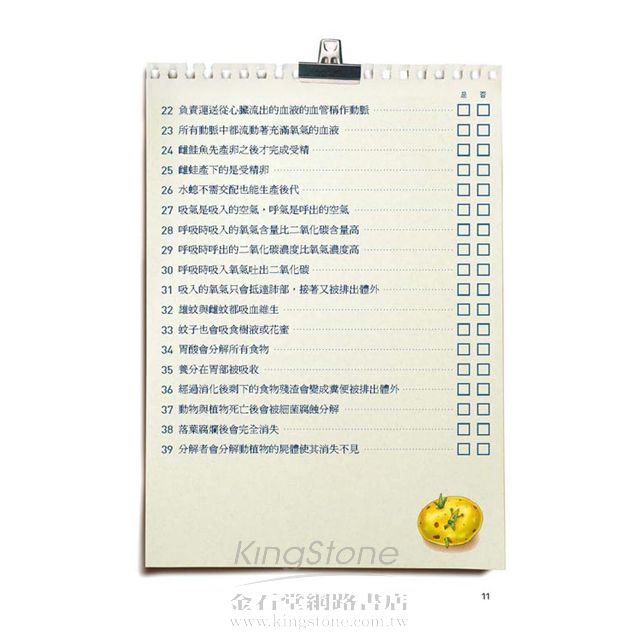 是 否
22 負責運送從心臟流出的血液的血管稱作動脈
23 所有動脈中都流動著充滿氧氣的血液
24 雌鮭魚先產卵之後才完成受精
25 雌蛙產下的是受精卵
26 水螅不需交配也能生產後代
27 吸氣是吸入的空氣,呼氣是呼出的空氣
28 呼吸時吸入的氧氣含量比二氧化碳含量高
29 呼吸時呼出的二氧化碳濃度比氧氣濃度高
30 呼吸時吸入氧氣吐出二氧化碳
31 吸入的氧氣只會抵達肺部,接著又被排出體外
32 雄蚊與雌蚊都吸血維生
33 蚊子也會吸食樹液或花蜜
34 胃酸會分解所有食物
35 養分在胃部被吸收
36 經過消化後剩下的食物殘渣會變成糞便被排出體外
37 動物與植物死亡後會被細菌腐蝕分解
38 落葉腐爛後會完全消失
39 分解者會分解動植物的屍體使其消失不見
KingStone
金石堂網路書店
www.kingstone.com.tw
11